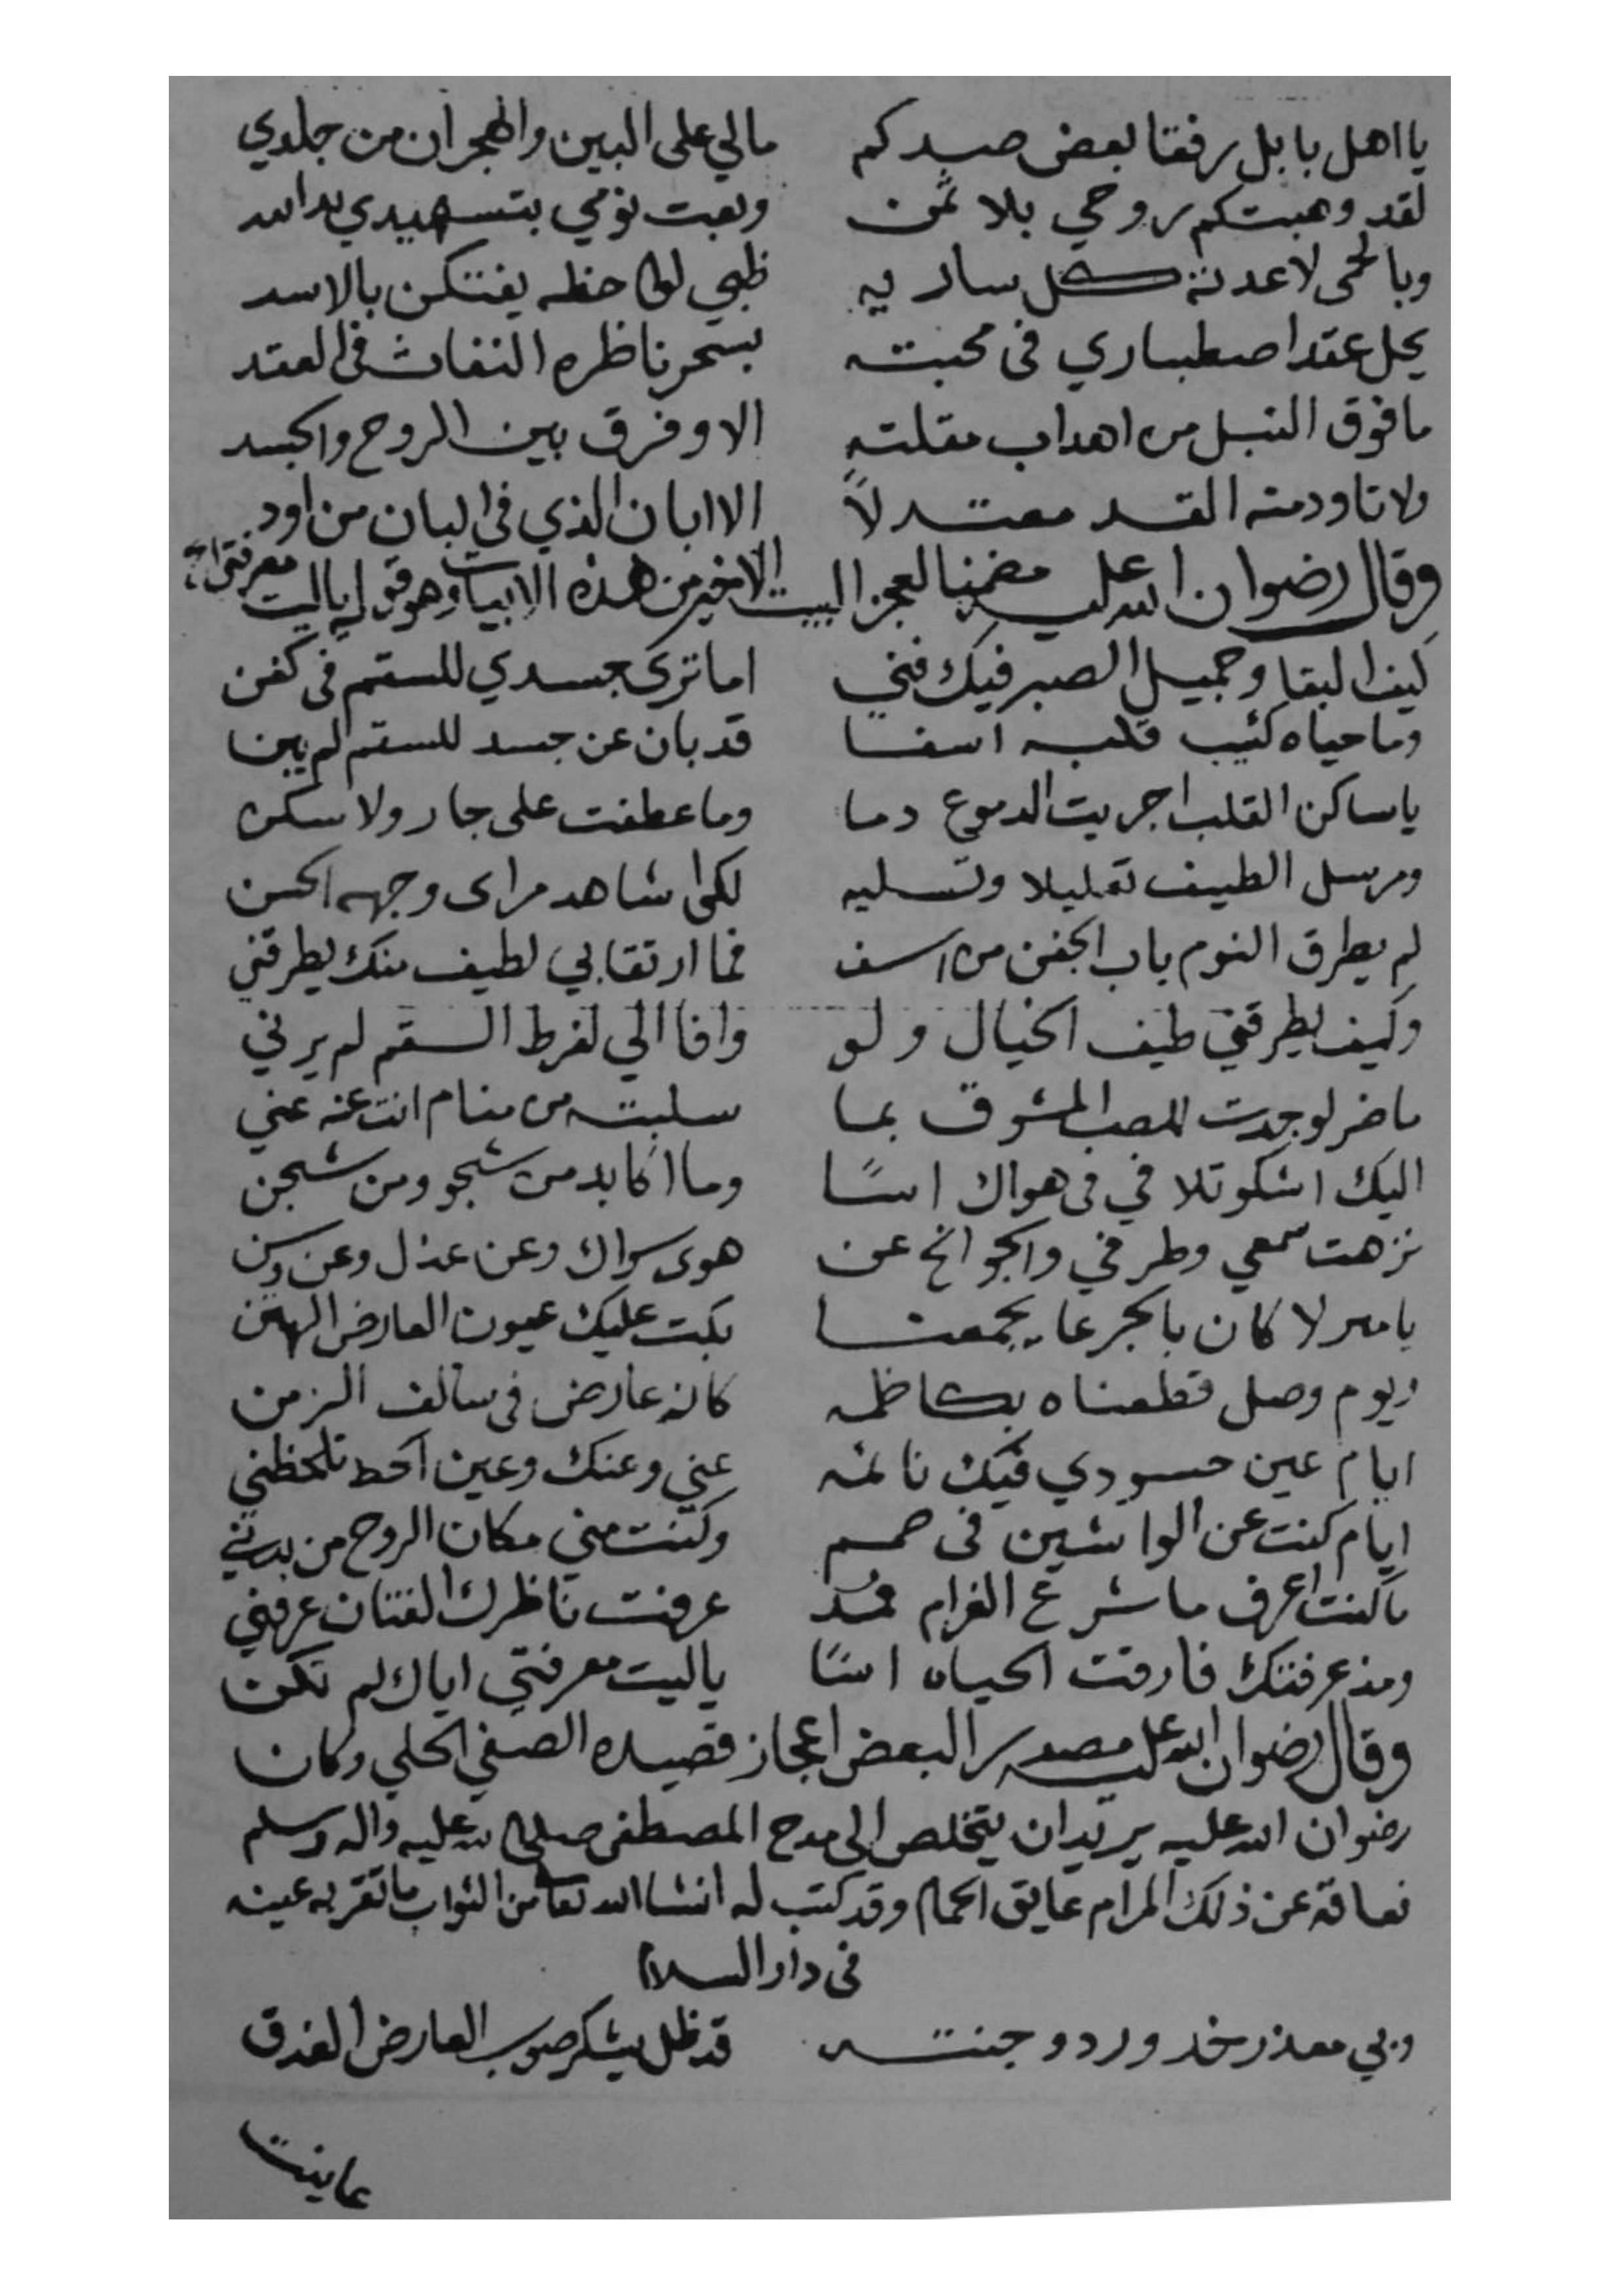 يا اهل بابل رفقا بعض صيدكم مالي على البين والهجران من جلدي
لقد وهبتكم روحي بلا ثمن وبعت نومي بتسهيدي يدا بيد
وبالحمى لا عدته كل ساريه ظبي لواحظه يفتكن بالاسد
يحل عقد اصطباري فى محبته بسحر ناظره النفاث فى العقد
ما فوق النبل من اهداب مقلته الا وفرق بين الروح والجسد
ولا تاود منه القد معتدلاً الا ابان الذي فى البان من اود
وقال رضوان الله عليه مضمنا لعجز البيت الاخير من هذه الابيات وهو قوله ياليت معرفتي
كيف البقا وجميل الصبر فيك فني اما ترى جسدي للسقم فى كفن
وما حياه كئيب قلبه اسفا قد بان عن جسد للسقم لم يبن
يا ساكن القلب اجريت الدموع دما وما عطفت على جار ولا سكن
ومرسل الطيف تعليلا وتسليه لكي اشاهد مراى وجهه الحسن
لم يطرق النوم باب الجفن من اسف فما ارتقابي لطيف منك يطرقني
وكيف يطرقني طيف الخيال ولو وافا الي لفرط السقم لم يرني
ما ضر لو جدت للصب المشوق بما سلبته من منام انت عنه غني
اليك اشكو تلافي فى هواك اسًا وما اكابد من شجو ومن شجن
نزهت سمعي وطرفي والجوانح عن هوى سواك وعن عذل وعن وسن
يا منزلا كان بالجرعا يجمعنا بكت عليك عيون العارض الهتن
ويوم وصل قطعناه بكاظمه كانه عارض فى سالف الزمن
ايام عين حسودي فيك نائمه عني وعنك وعين الحظ تلحظني
ايام كنت عن الواشين فى صمم وكنت مني مكان الروح من بدني
ما كنت اعرف ما شرع الغرام فمُذ عرفت ناظرك الفتان عرفني
ومذ عرفتك فارقت الحياه اسًا ياليت معرفتي اياك لم تكن
وقال رضوان الله عليه مصدرا لبعض اعجاز قصيده الصفي الحلي وكان
رضوان الله عليه يريد ان يتخلص الى مدح المصطفى صلى الله عليه واله وسلم
فعاقه عن ذلك المرام عايق الحمام وقد كتب له انشا الله تعا من الثواب ما تقر به عينه
فى دار السلام
وبي معذر خد ورد وجنته قد ظل يشكر صوب العارض الغدق
عاينت